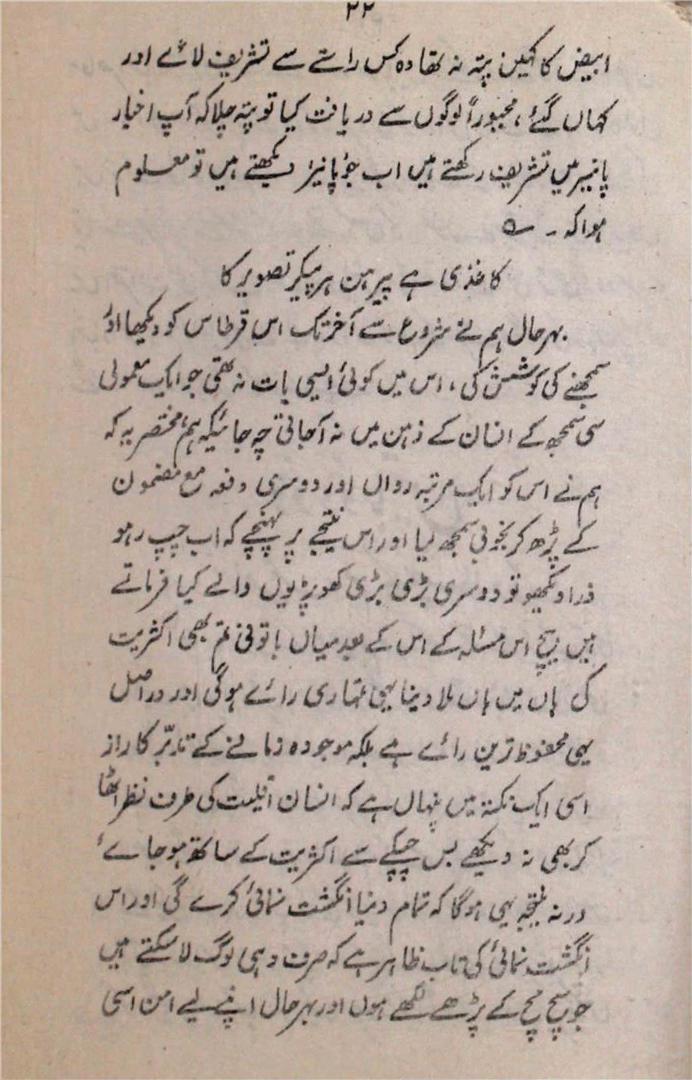 ۲۲
ابیض کا کہین پتہ نہ تھا دہ کس راستے سے تشریف لائے اور
کہاں گئے، مجبوراً لوگوں سے دریافت کیا تو پتہ چلا کہ آپ اخبار
پانیر میں تشریف رکھتے ہیں اب جو پانیر دیکھتے ہیں تو معلوم
ہوا کہ ۔ ؎
کاغذی ہے پیرہن ہر پیکرِ تصویر کا
بہرحال ہم نے شروع سے آخر تک اس قرطاس کو دیکھا اور
سمجھنے کی کوشش کی، اس میں کوئی ایسی بات نہ تھی جو ایک معمولی
سی سمجھ کے انسان کے ذہن میں نہ آجاتی چہ جائیکہ ہم مختصر یہ کہ
ہم نے اس کو ایک مرتبہ رواں اور دوسری دفعہ مع مضمون
کے پڑھ کر بخوبی سمجھ لیا اور اس نتیجے پر پہنچے کہ اب چپ رہو
ذرا دیکھو تو دوسری بڑی بڑی کھوپڑیوں والے کیا فرماتے
ہیں بیچ اس مسئلہ کے اس کے بعد میاں باتونی تم بھی اکثریت
کی ہاں میں ہاں ملا دینا یہی تمہاری رائے ہوگی اور دراصل
یہی محفوظ ترین رائے ہے بلکہ موجودہ زمانے کے تدبّر کا راز
اسی ایک نکتہ میں پنہاں ہے کہ انسان اقلیت کی طرف نظر اٹھا
کر بھی نہ دیکھے بس چپکے سے اکثریت کے ساتھ ہوجائے
ورنہ نتیجہ یہی ہوگا کہ تمام دنیا انگشت نمائی کرے گی اور اس
انگشت نمائی کی تاب ظاہر ہے کہ صرف وہی لوگ لاسکتے ہیں
جو سچ مچ کے پڑھے لکھے ہوں اور بہرحال اپنے لیے امن اسی